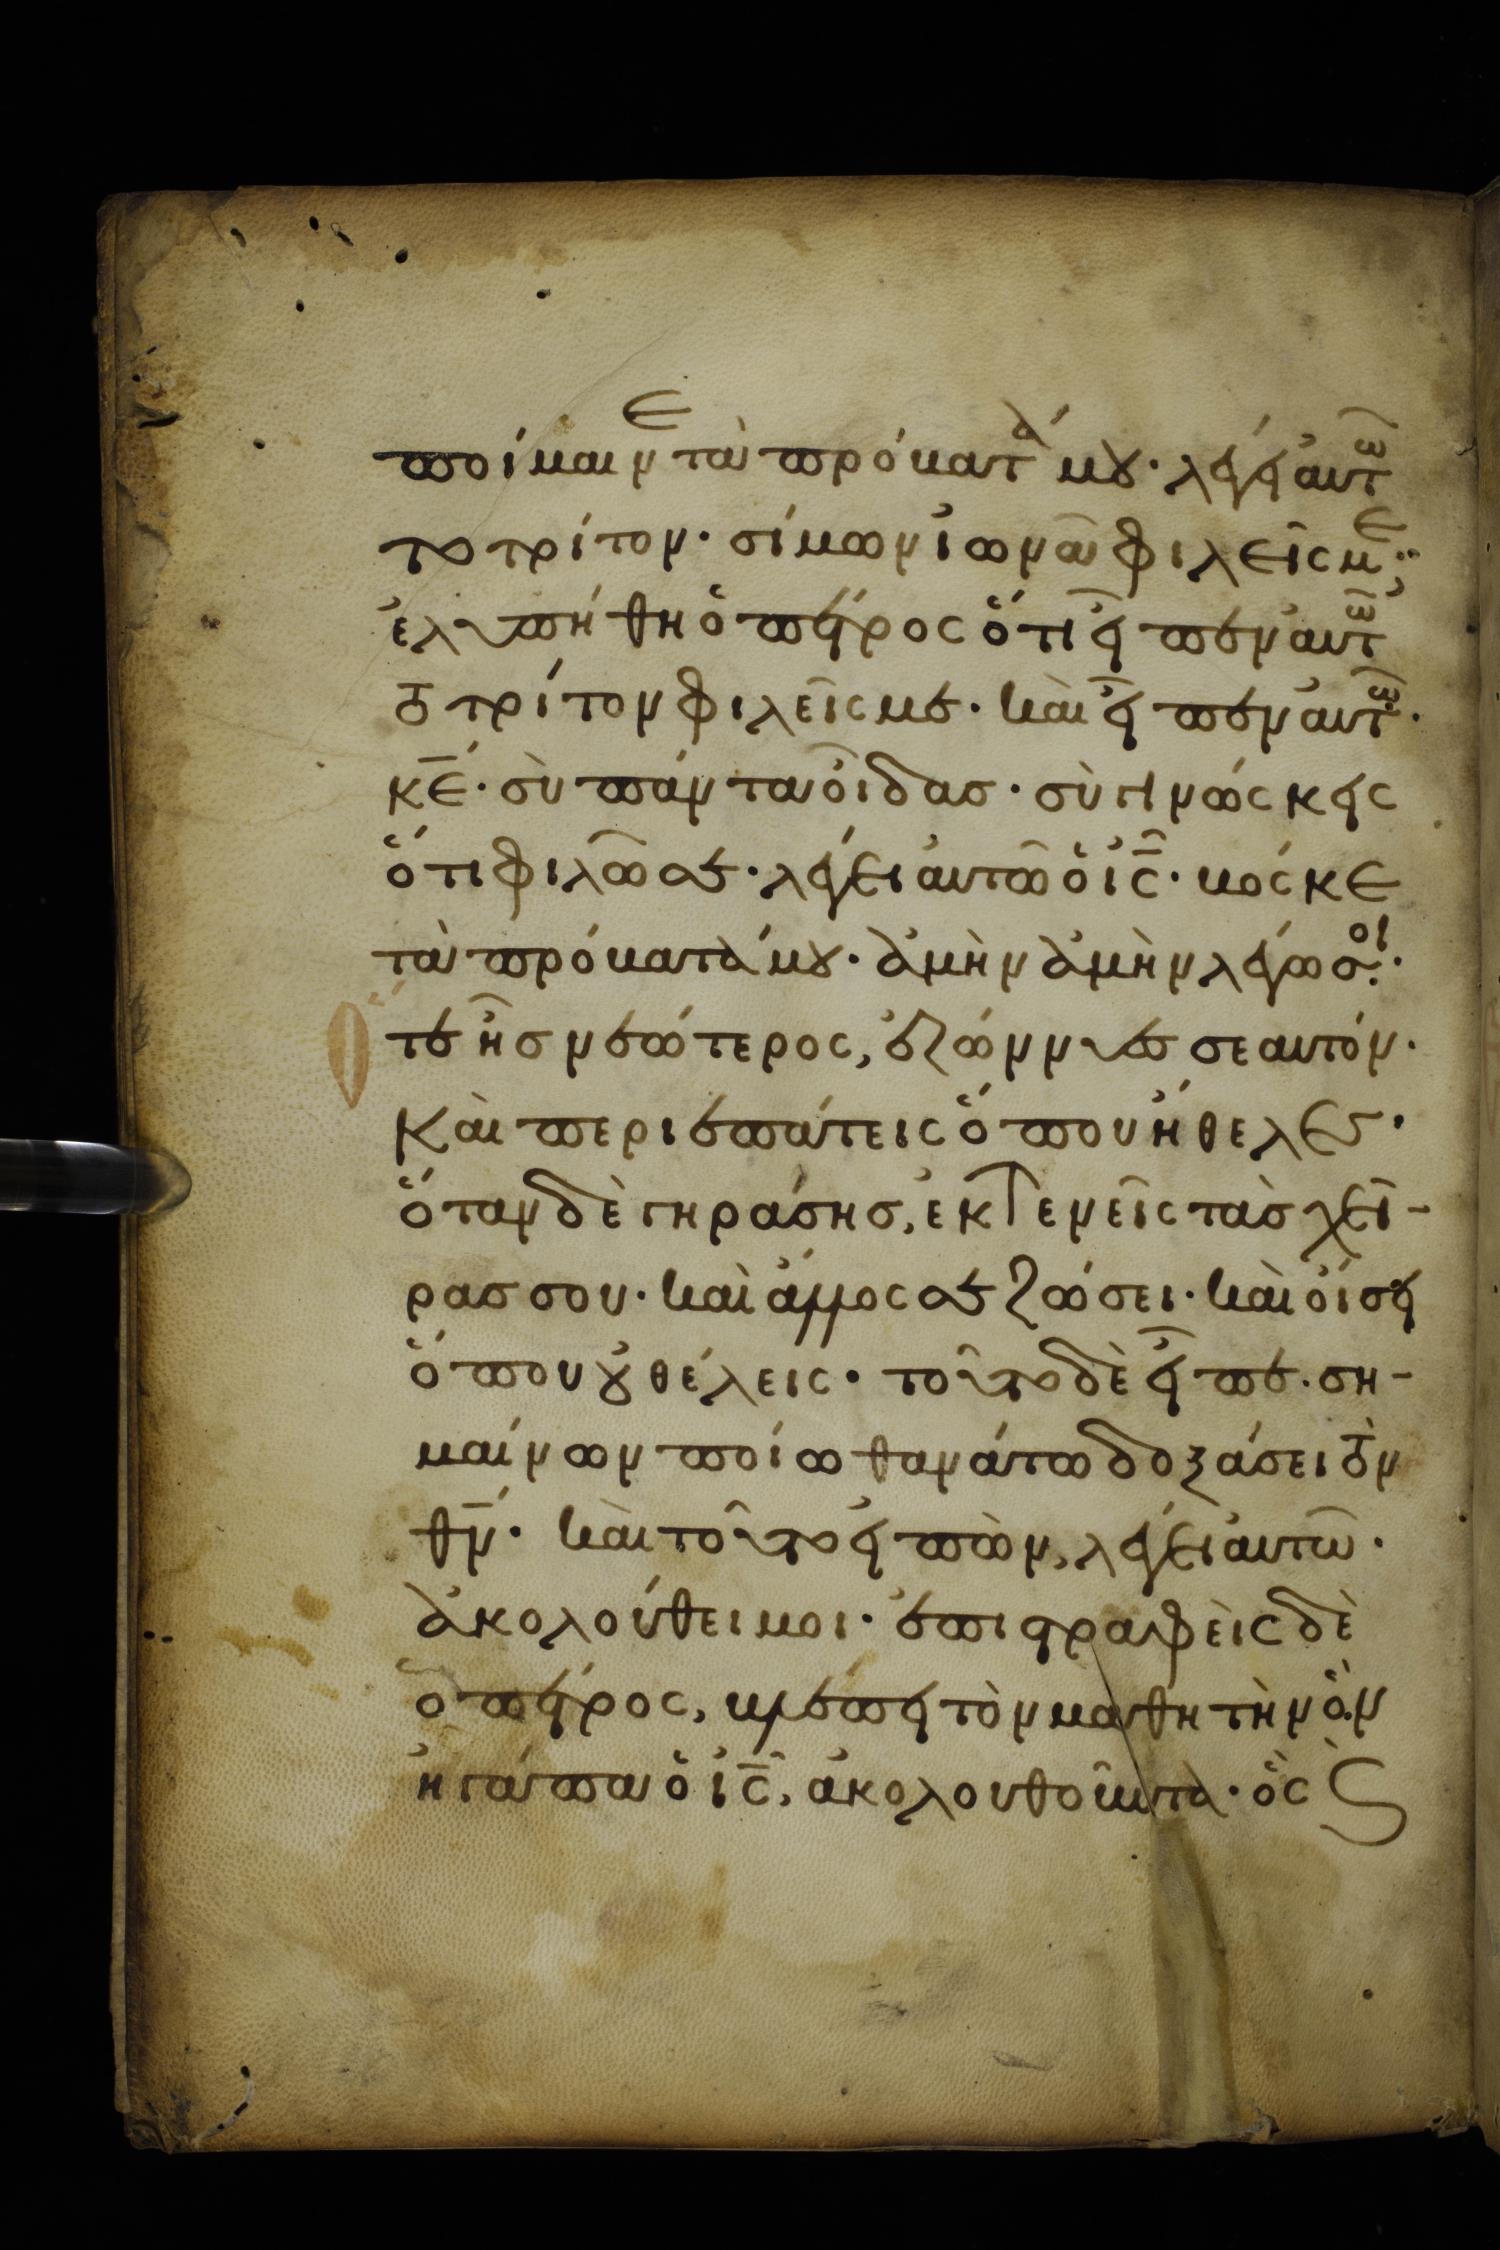 ποίμαιν ε τὰ πρόβατά μου· λέγει αὐτῶ
το τρίτον· σίμων ἰωνᾶ φιλεῖς με;
ἐλυπήθη ὁ πέτρος ὅτι εἶπεν αὐτῶ
τὸ τρίτον φιλεῖς με· καὶ εἶπεν αὐτῶ·
κ̅ε̅· σὺ πάντα οἶδας· σὺ γινώσκεις
ὅτι φιλῶ σε· λέγει αὐτῶ ὁ ι̅ς̅· βόσκε
τὰ πρόβατά μου· ἀμὴν ἀμὴν λέγω σοι·
Ὅτε ἦς νεώτερος, ἐζώννυες σεαυτόν·
καὶ περιεπάτεις ὅπου ἤθελες·
ὅταν δὲ γηράσης, ἐκτενεῖς τὰς χεῖ-
ρας σου· καὶ ἄλλος σε ζώσει· καὶ οἴσει
ὅπου οὐ θέλεις· τοῦτο δὲ εἶπε· ση-
μαίνων ποίω θανάτω δοξάσει τὸν
θ̅ν̅· καὶ τοῦτο εἰπὼν, λέγει αὐτῶ·
ἀκολούθει μοι· ἐπιστραφεὶς δὲ
ὁ πέτρος, βλέπει τὸν μαθητὴν ὃν
ἠγάπα ὁ ι̅ς̅, ἀκολουθοῦντα· ὃς ϗ